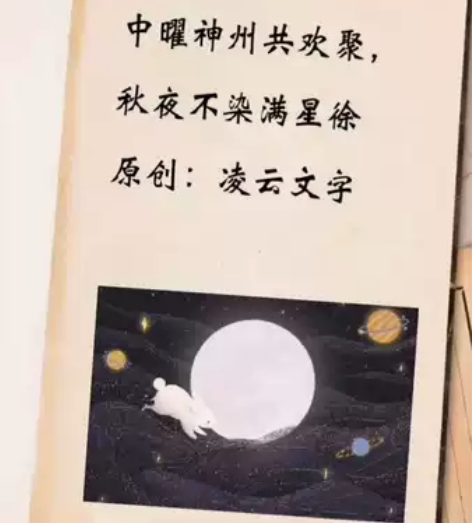 中曜神州共欢聚，
秋夜不染满星徐
原创：凌云文字